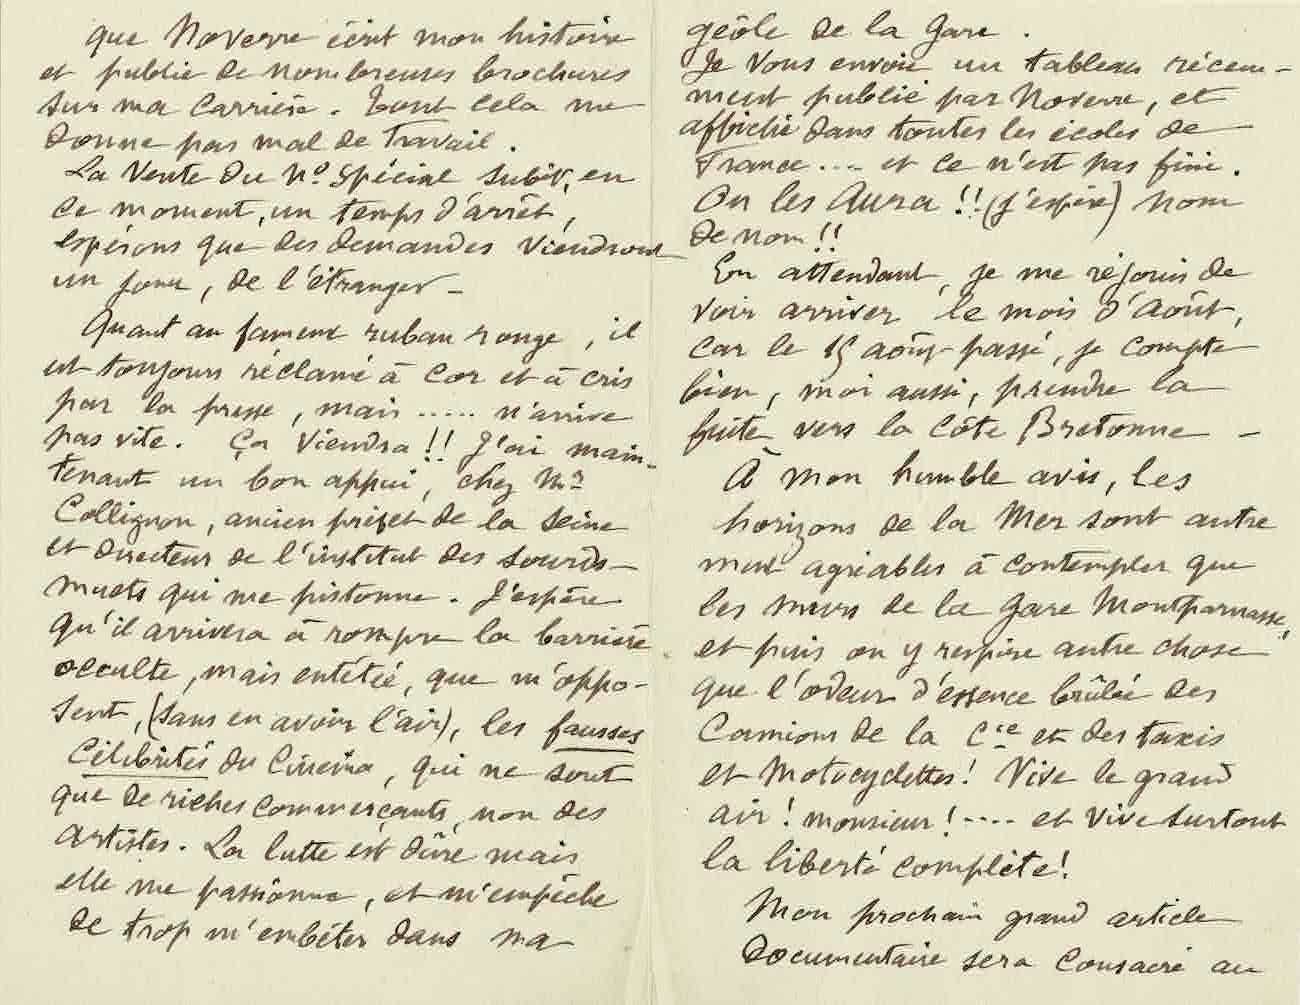 que Noverre écrit mon histoire
et publie de nombreuses brochures
sur ma Carrière. Tout cela me
donne pas mal de Travail.
La Vente du Nº Spécial subit, en
ce moment, un temps d'arrêt,
espérons que des demandes viendront
un jour, de l'étranger -
Quant au fameux ruban rouge, il
est toujours réclamé à cor et à cris
par la presse, mais ..... n'arrive
pas vite. Ça viendra !! J'ai main-
tenant un bon appui, chez Mr
Collignon, ancien préfet de la Seine
et directeur de l'institut des sourds-
muets qui me pistonne. J'espère
qu'il arrivera à rompre la barrière
occulte, mais entêtée, que m'oppo-
sent, (sans en avoir l'air), les fausses
Célébrités du Cinéma, qui ne sont
que de riches commerçants, non des
artistes. La lutte est dûre mais
elle me passionne, et m'empêche
de trop m'embêter dans ma
geôle de la Gare.
Je Vous envoie un tableau récem-
ment publié par Noverre, et
affiché dans toutes les écoles de
France .... et ce n'est pas fini.
On les Aura !! (j'espère) nom
de nom !!
En attendant, je me réjouis de
voir arriver le mois d'Août,
car le 15 août passé, je compte
bien, moi aussi, prendre la
fuite vers la Côte Bretonne -
À mon humble avis, les
horizons de la Mer sont autre
ment agréables à contempler que
les murs de la Gare Montparnasse,
et puis on y respire autre chose
que l'odeur d'essence brûlée des
Camions de la Cie et des taxis
et Motocyclettes! Vive le grand
air! monsieur! .... et vive surtout
la liberté complète!
Mon prochain grand article
Documentaire sera Consacré au